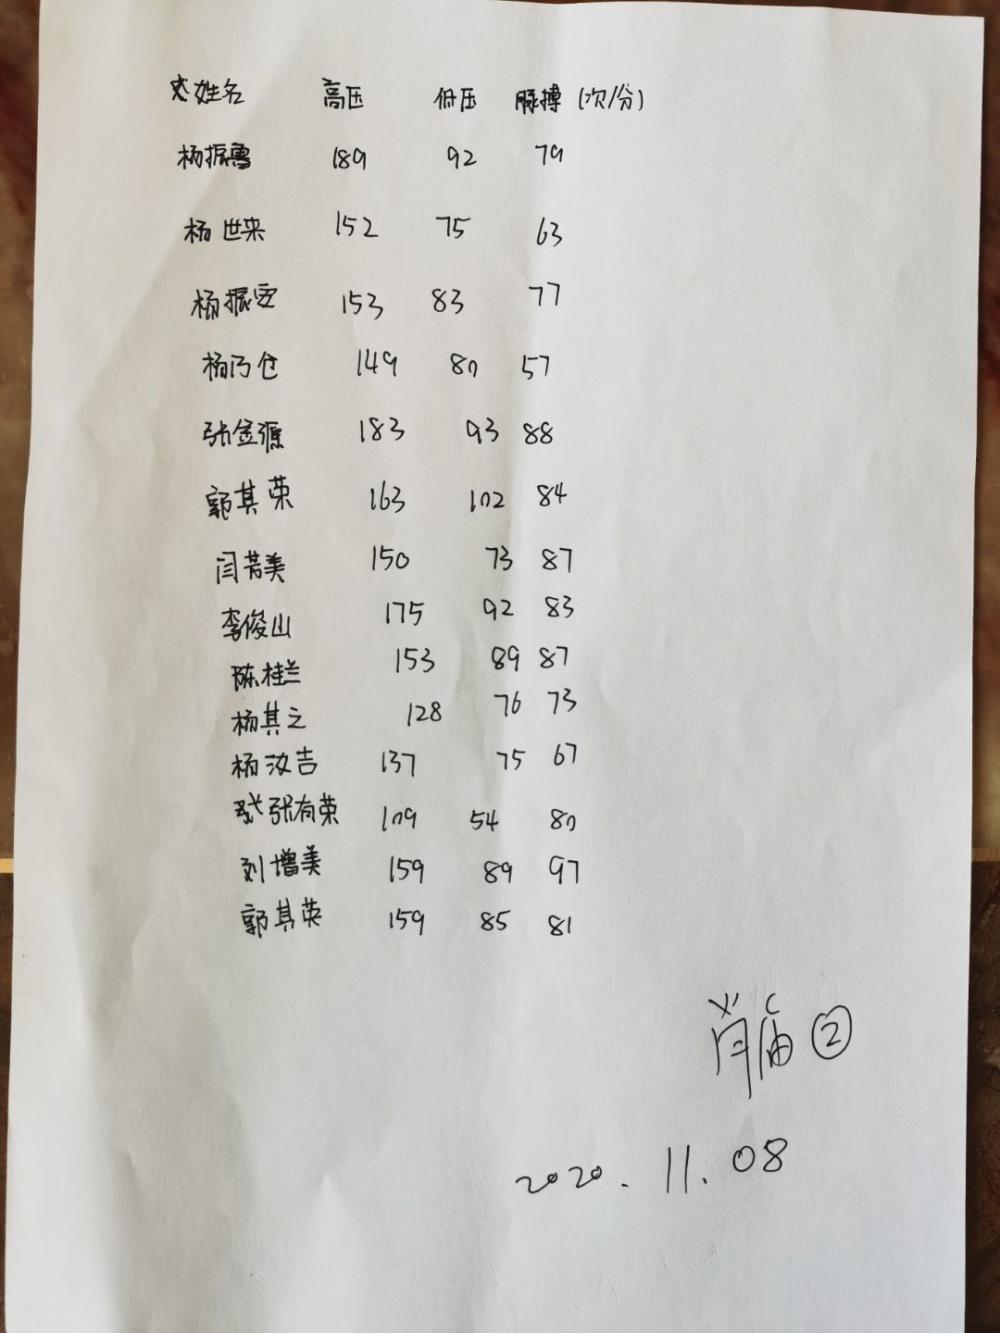 姓名 高压 低压 脉搏 (次/分)
杨振鲁 189 92 79
杨世来 152 75 63
杨振安 153 83 77
杨乃仓 149 80 57
张金源 183 93 88
郭其荣 163 102 84
闫芳美 150 73 87
李俊山 175 92 83
陈桂兰 153 89 87
杨其之 128 76 73
杨汝吉 137 75 67
张有荣 109 54 80
刘增美 159 89 97
郭其英 159 85 81
肖庙 ②
2020.11.08